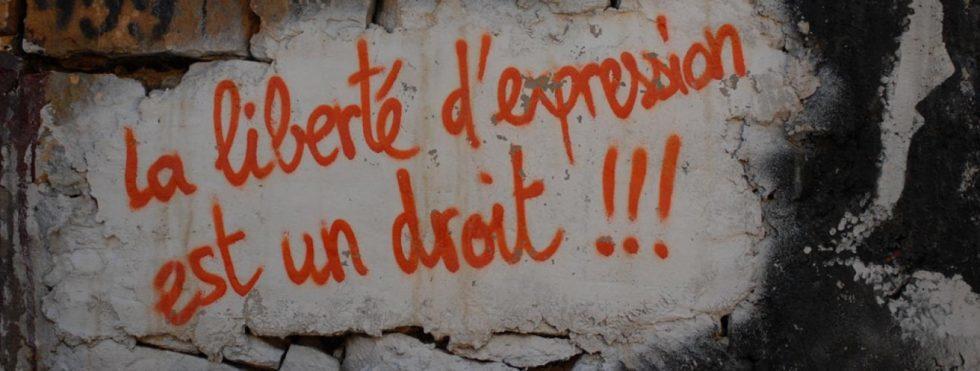 La liberté d'expression
est un droit !!!